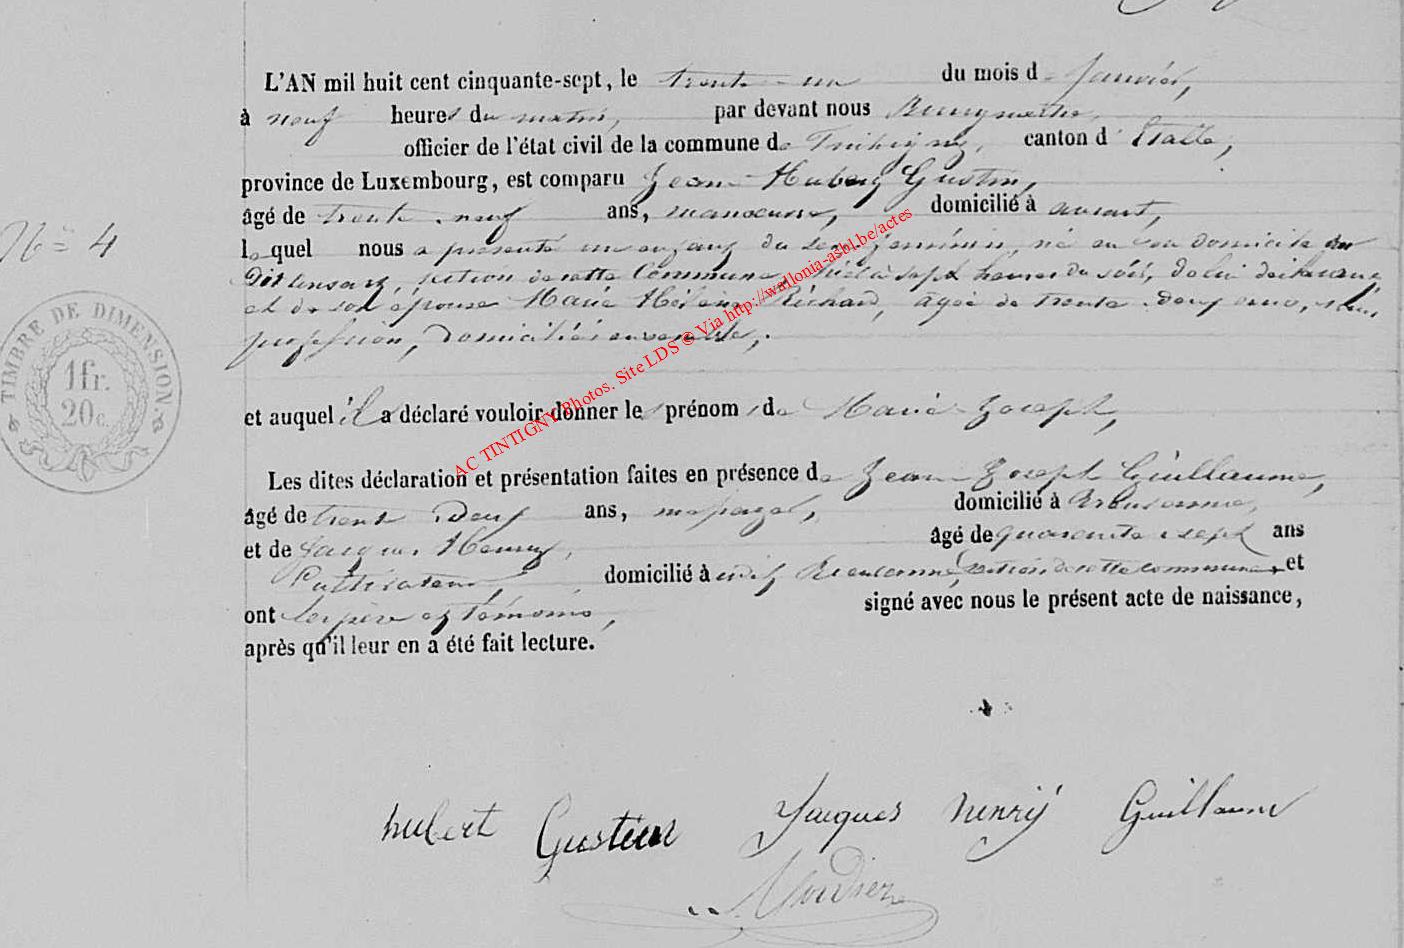 L'AN mil huit cent cinquante-sept, le trente-un du mois de Janvier,
à neuf heures du matin, par devant nous Bourgmestre,
officier de l'état civil de la commune de canton d'Etalle,
province de Luxembourg, est comparu Jean Hubert Gustin,
âgé de trente-neuf ans, manoeuvre, domicilié à Ansart,
N° 4
lequel nous a présenté un enfant du sexe féminin, né en son domicile
section de cette Commune, à sept heures du soir, de lui déclarant,
et de son épouse Marie Hélène Richard, agée de trente-deux ans, sans
profession, domiciliés ensemble,
TIMBRE DE DIMENSION
1 fr.
20 c.
et auquel il a déclaré vouloir donner les prénoms de Marie Joseph,
Les dites déclaration et présentation faites en présence de Jean Joseph Guillaume,
âgé de trente deux ans, domicilié à
et de Jacques Henry, âgé de quarante-sept ans
Cultivateur, domicilié à section de cette commune, et
ont les père et témoins, signé avec nous le présent acte de naissance,
après qu'il leur en a été fait lecture.
AC TINTIGNY Photos. Site LDS © Via http://wallonia-asbl.be/actes
hubert Gustin Jacques henrÿ Guillaume